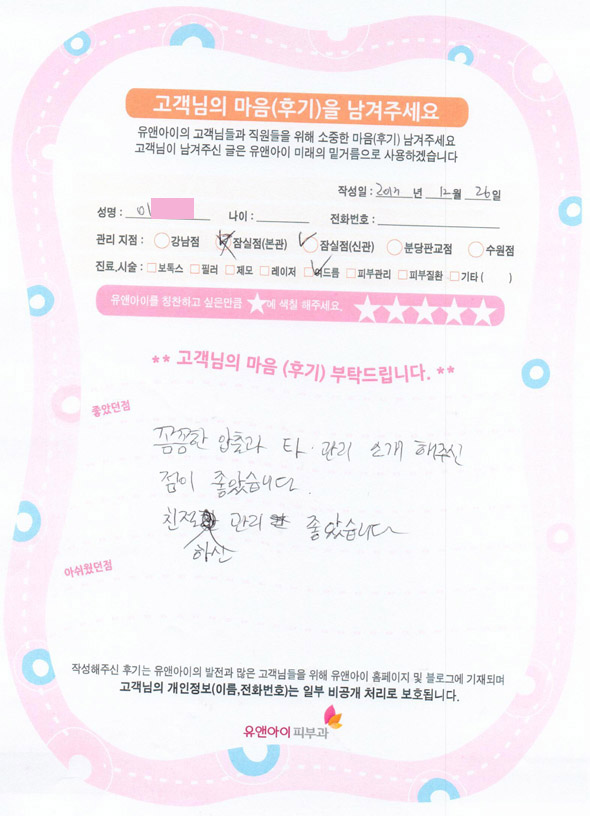 고객님의 마음(후기)을 남겨주세요
유앤아이의 고객님들과 직원들을 위해 소중한 마음(후기) 남겨주세요
고객님이 남겨주신 글은 유앤아이 미래의 밑거름으로 사용하겠습니다
작성일 : 2017 년 12월 26일
성명 : 이 나이 : 전화번호 :
관리 지점 : 강남점 잠실점(본관) 잠실점(신관) 분당판교점 수원점
진료,시술 : 보톡스 필러 제모 레이저 여드름 피부관리 피부질환 기타 ( )
유앤아이를 칭찬하고 싶은만큼 ★에 색칠 해주세요. ★★★★★
** 고객님의 마음 (후기) 부탁드립니다. **
좋았던점
꼼꼼한 압출과 타·관리 소개 해주신
점이 좋았습니다.
친절 관리 좋았습니다
하신
아쉬웠던점
작성해주신 후기는 유앤아이의 발전과 많은 고객님들을 위해 유앤아이 홈페이지 및 블로그에 기재되며
고객님의 개인정보(이름,전화번호)는 일부 비공개 처리로 보호됩니다.
유앤아이피부과